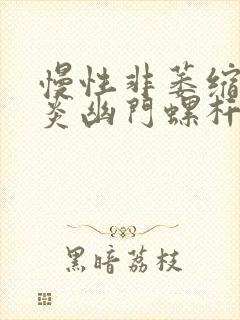 慢性非萎缩
炎幽門螺杆
黑暗荔枝